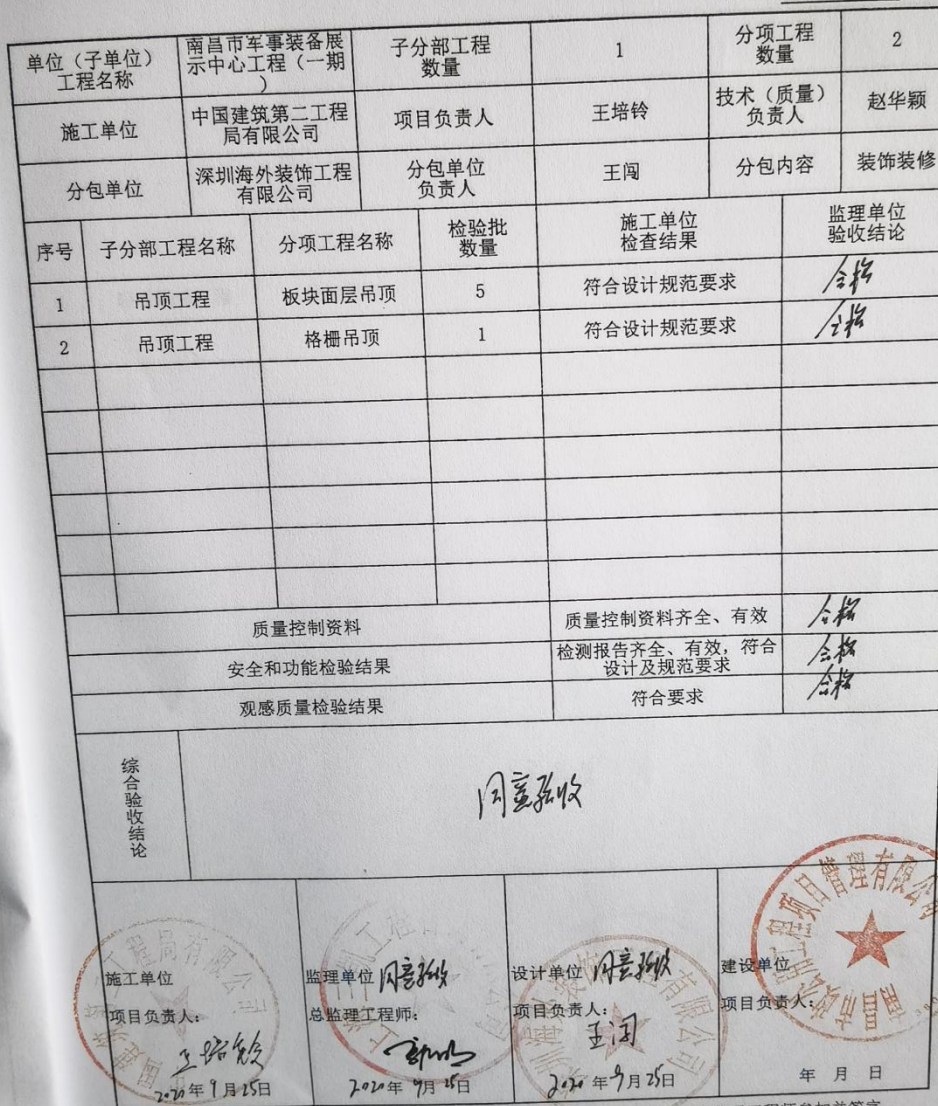 单位（子单位）
工程名称
南昌市军事装备展
示中心工程（一期
）
子分部工程
数量
1
分项工程
数量
2
施工单位
中国建筑第二工程
局有限公司
项目负责人
王培铃
技术（质量）
负责人
赵华颖
分包单位
深圳海外装饰工程
有限公司
分包单位
负责人
王闯
分包内容
装饰装修
序号
子分部工程名称
分项工程名称
检验批
数量
施工单位
检查结果
监理单位
验收结论
1
吊顶工程
板块面层吊顶
5
符合设计规范要求
合格
2
吊顶工程
格栅吊顶
1
符合设计规范要求
合格
质量控制资料
质量控制资料齐全、有效
合格
安全和功能检验结果
检测报告齐全、有效，符合
设计及规范要求
合格
观感质量检验结果
符合要求
合格
综合验收结论
同意验收
施工单位
项目负责人：
王培铃
2020年9月25日
监理单位 同意验收
总监理工程师：
2020年9月25日
设计单位 同意验收
项目负责人：
王闯
2020年9月25日
建设单位
项目负责人：
年 月 日
工程项目管理有限公司